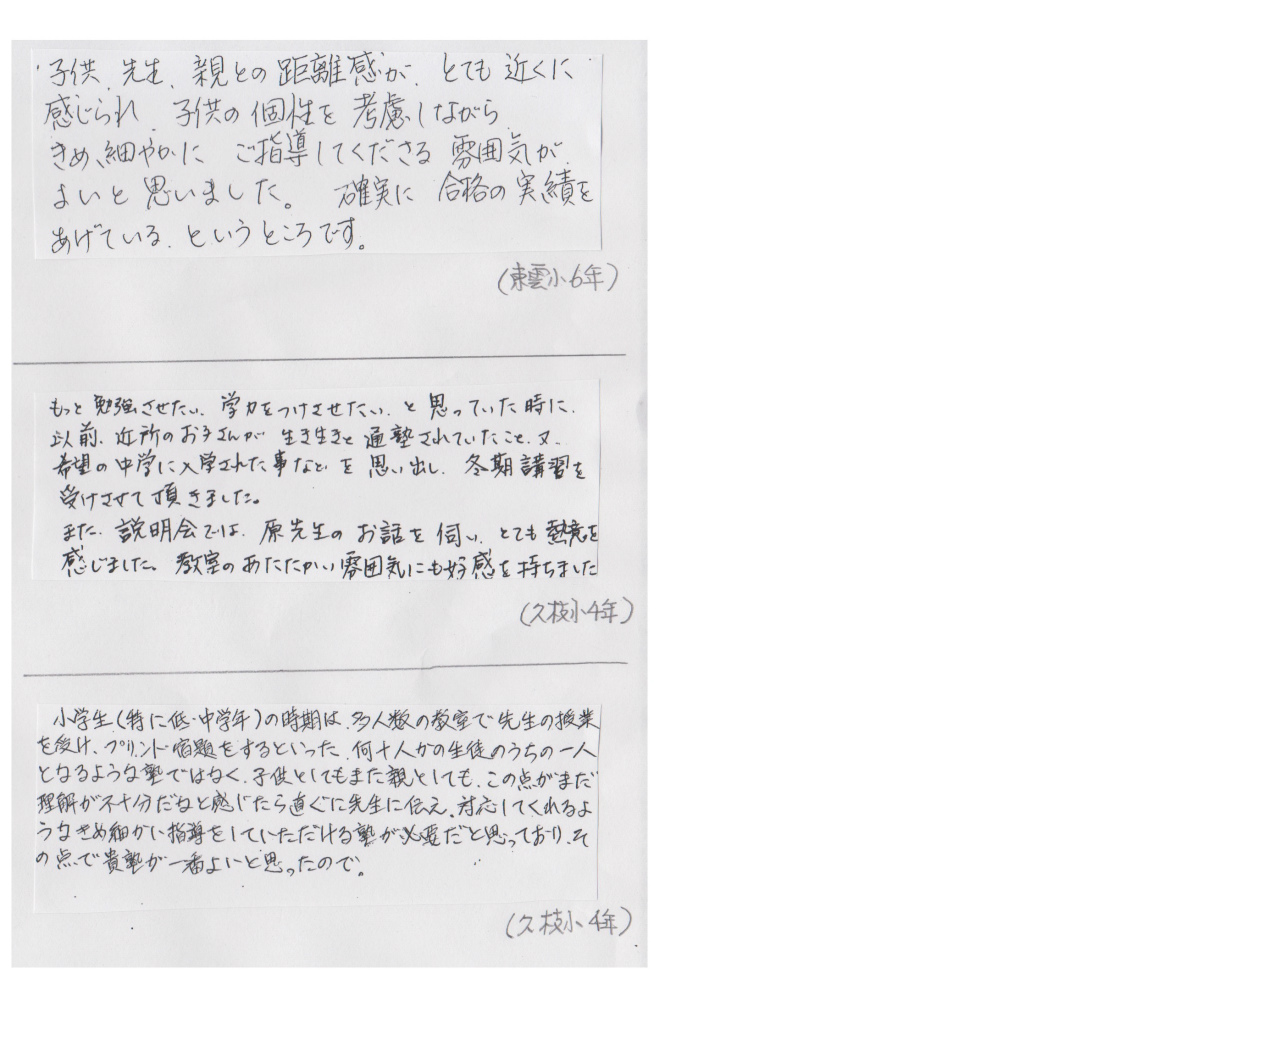 子供、先生、親との距離感が、とても近くに
感じられ、子供の個性を考慮しながら
きめ細やかに ご指導してくださる雰囲気が
よいと思いました。 確実に合格の実績を
あげている、というところです。
(東雲小6年)
もっと勉強させたい、学力をつけさせたい、と思っていた時に、
以前、近所のお子さんが生き生きと通塾されていたこと、又、
希望の中学に入学された事などを思い出し、冬期講習を
受けさせて頂きました。
また、説明会では、原先生のお話を伺い、とても熱意を
感じました。教室のあたたかい雰囲気にも好感を持ちました
(久枝小4年)
小学生(特に低・中学年)の時期は、多人数の教室で先生の授業
を受け、プリント宿題をするといった、何十人かの生徒のうちの一人
となるような塾ではなく、子供としてもまた親としても、この点がまだ
理解が不十分だなと感じたら直ぐに先生に伝え、対応してくれるよ
うなきめ細かい指導をしていただける塾が必要だと思っており、そ
の点で貴塾が一番よいと思ったので。
(久枝小4年)